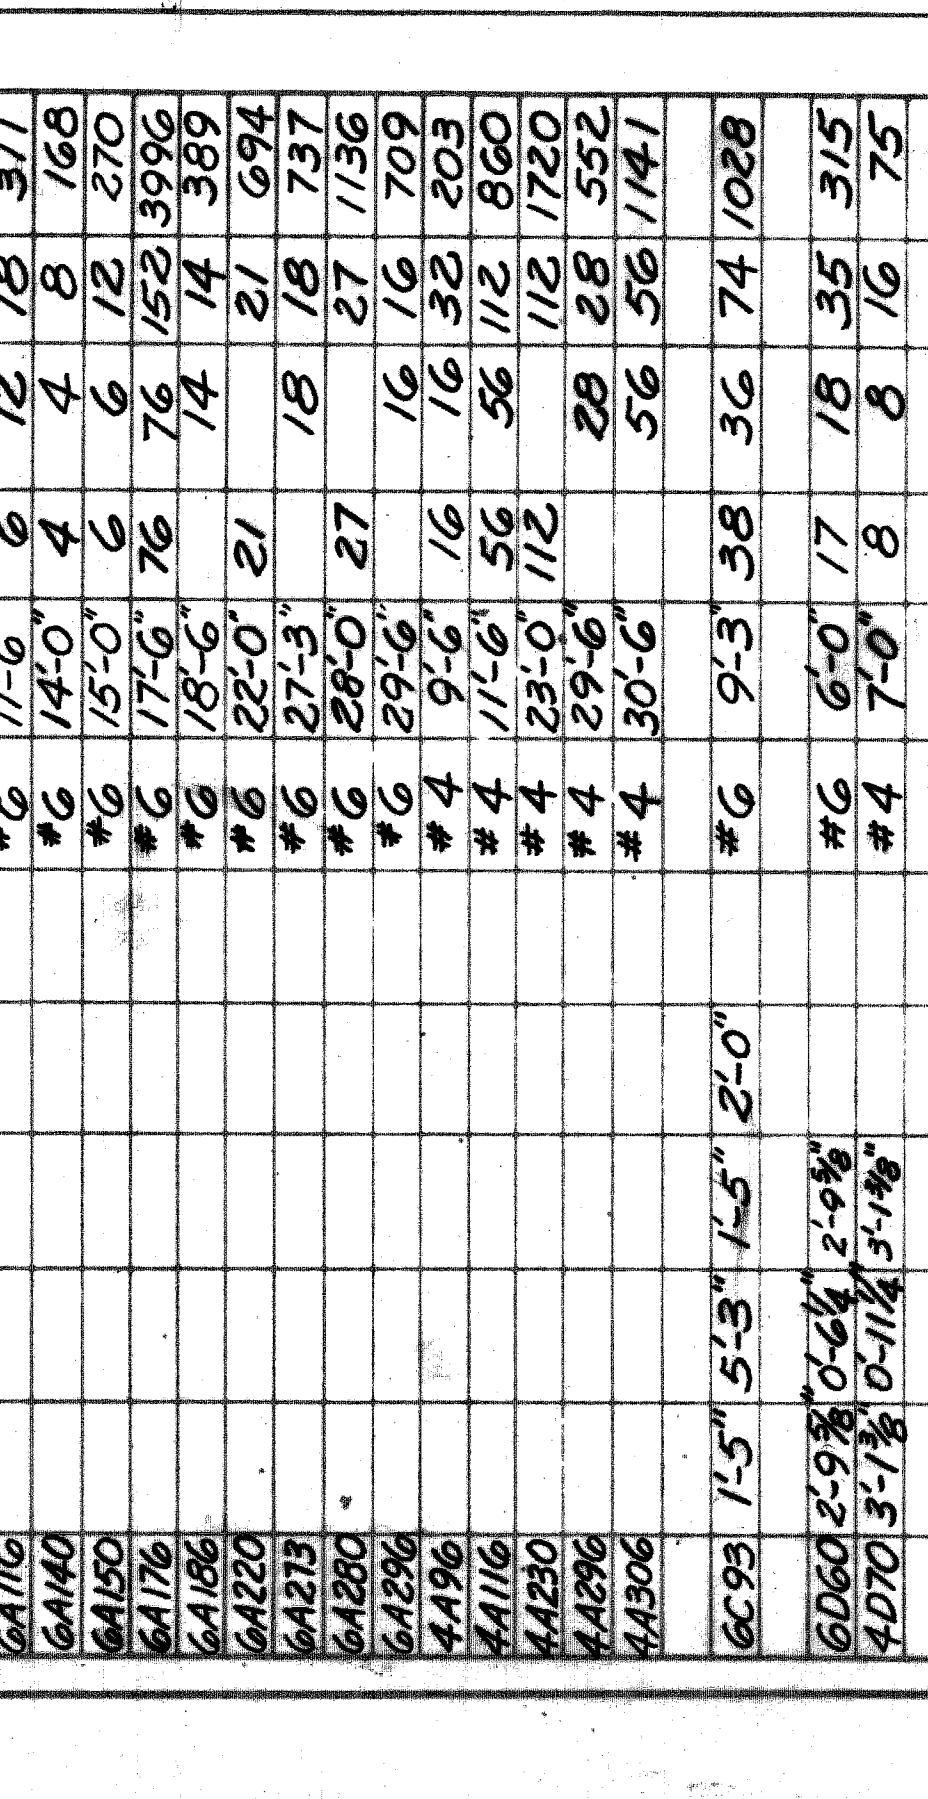 6A116 #6 11'-6 6 12 18 311
6A140 #6 14'-0" 4 4 8 168
6A150 #6 15'-0" 6 6 12 270
6A176 #6 17'-6" 76 76 152 3996
6A186 #6 18'-6" 14 14 389
6A220 #6 22'-0" 21 21 694
6A273 #6 27'-3" 18 18 737
6A280 #6 28'-0" 27 27 1136
6A296 #6 29'-6" 16 16 709
4A96 #4 9'-6" 16 16 32 203
4A116 #4 11'-6" 56 56 112 860
4A230 #4 23'-0" 112 112 1720
4A296 #4 29'-6" 28 28 552
4A306 #4 30'-6" 56 56 1141
6C93 1'-5" 5'-3" 1'-5" 2'-0" #6 9'-3" 38 36 74 1028
6D60 2'-9 5/8" 0'-6 1/4" 2'-9 5/8" #6 6'-0" 17 18 35 315
4D70 3'-1 3/8" 0'-11 1/4" 3'-1 3/8" #4 7'-0" 8 8 16 75